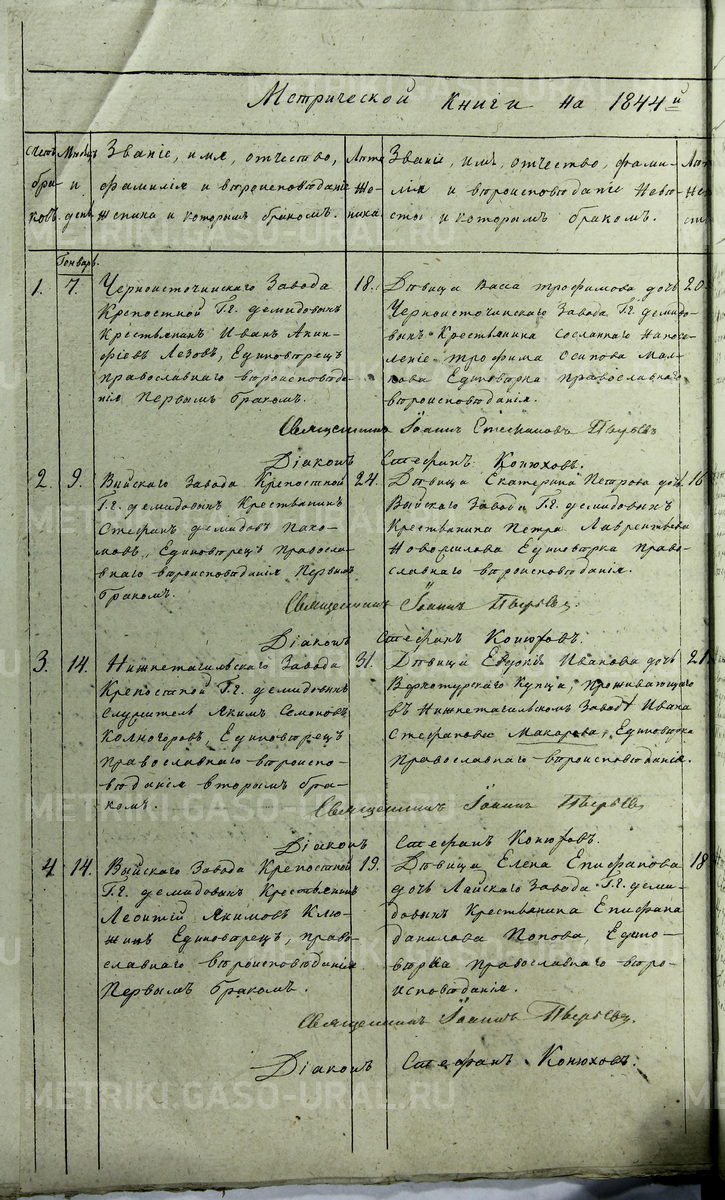 Метрической книги на 1844й
Счетъ браковъ.
Мѣсяцъ и день.
Званіе, имя, отчество,
фамилія и вѣроисповѣданіе
жениха и которымъ бракомъ.
Лѣта жениха.
Званіе, имя, отчество, фами-
лія и вѣроисповѣданіе невѣ-
сты и которымъ бракомъ.
Генварь.
1. 7.
Черноисточинскаго Завода
Крепостной Г.г. Демидовыхъ
Крестьянинъ Иванъ Акин-
фіевъ Лезовъ, Единовѣрецъ
православнаго вѣроисповѣда-
нія Первымъ бракомъ.
18.
Дѣвица Васа Трофимова дочь
Черноисточинскаго Завода Г.г. Демидо-
выхъ Крестьянина сосланнаго на посе-
леніе Трофима Осипова Мал-
кова Единовѣрка православнаго
вѣроисповѣданія.
20.
Священникъ Іоаннъ Стефановъ Пырьевъ
Діаконъ Стефанъ Конюховъ.
2. 9.
Выйскаго Завода Крепостной
Г.г. Демидовыхъ Крестьянинъ
Стефанъ Демидовъ Пахо-
мовъ, Единовѣрецъ правосла-
внаго вѣроисповѣданія Первымъ
бракомъ.
24.
Дѣвица Екатерина Петрова дочь
Выйскаго Завода Г.г. Демидовыхъ
Крестьянина Петра Лаврентьева
Единовѣрка право-
славнаго вѣроисповѣданія.
16
Священникъ Іоаннъ Пырьевъ
Діаконъ Стефанъ Конюховъ.
3. 14.
Нижнетагильскаго Завода
Крепостной Г.г. Демидовыхъ
Служитель Якимъ Семеновъ
Колногоровъ, Единовѣрецъ
православнаго вѣроиспо-
вѣданія вторымъ бра-
комъ.
31.
Дѣвица Иванова дочь
Верхотурскаго Купца, проживающаго
въ Нижнетагильскомъ Заводѣ Ивана
Стефанова Макарова, Единовѣрка
Православнаго вѣроисповѣданія.
21.
Священникъ Іоаннъ Пырьевъ
Діаконъ Стефанъ Конюховъ.
4. 14.
Выйскаго Завода Крепостной
Г.г. Демидовыхъ Крестьянинъ
Леонтій Якимовъ Клю-
жинъ Единовѣрецъ, право-
славнаго вѣроисповѣданія
Первымъ бракомъ.
19.
Дѣвица Елена Епифанова
дочь Лайскаго Завода Г.г. Деми-
довыхъ Крестьянина Епифана
Данилова Попова, Едино-
вѣрка православнаго вѣро-
исповѣданія.
18
Священникъ Іоаннъ Пырьевъ.
Діаконъ Стефанъ Конюховъ.
METRIKI.GASO-URAL.RU